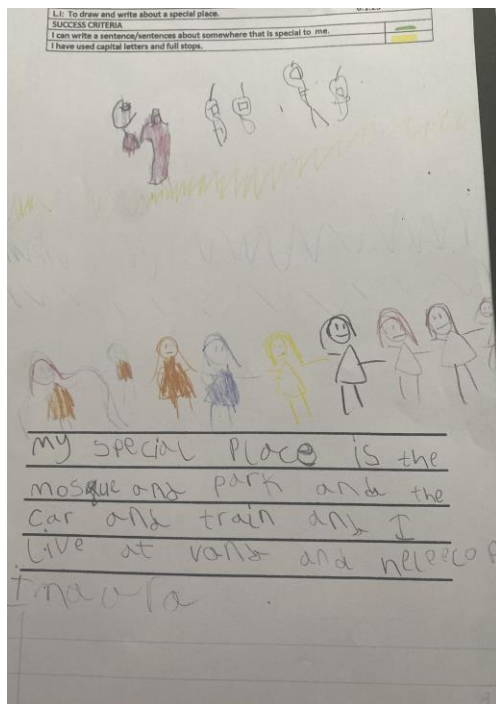 L.I: To draw and write about a special place.
SUCCESS CRITERIA
I can write a sentence/sentences about somewhere that is special to me.
I have used capital letters and full stops.
My special place is the
mosque and park and the
car and train and I
Live at vand and